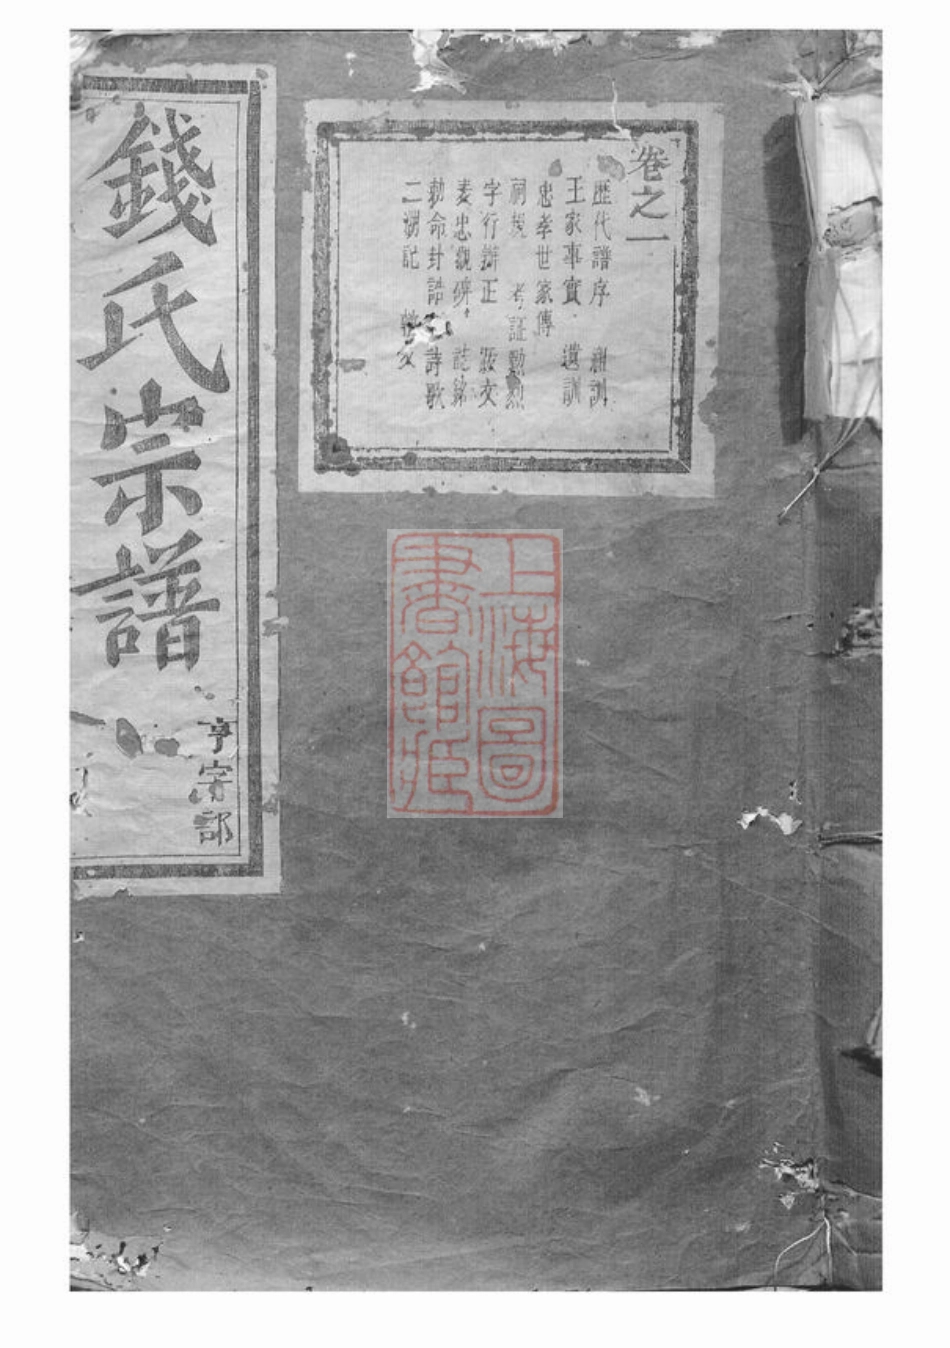 卷之一
歷代譜序 祖訓
王家事實 遺訓
忠孝世家傳
祠規 考証勳烈
字行辯正 跋文
表忠觀碑 誌銘
勅命封誥 詩歌
二湖記
錢氏宗譜
亨字部
上海圖
書館藏